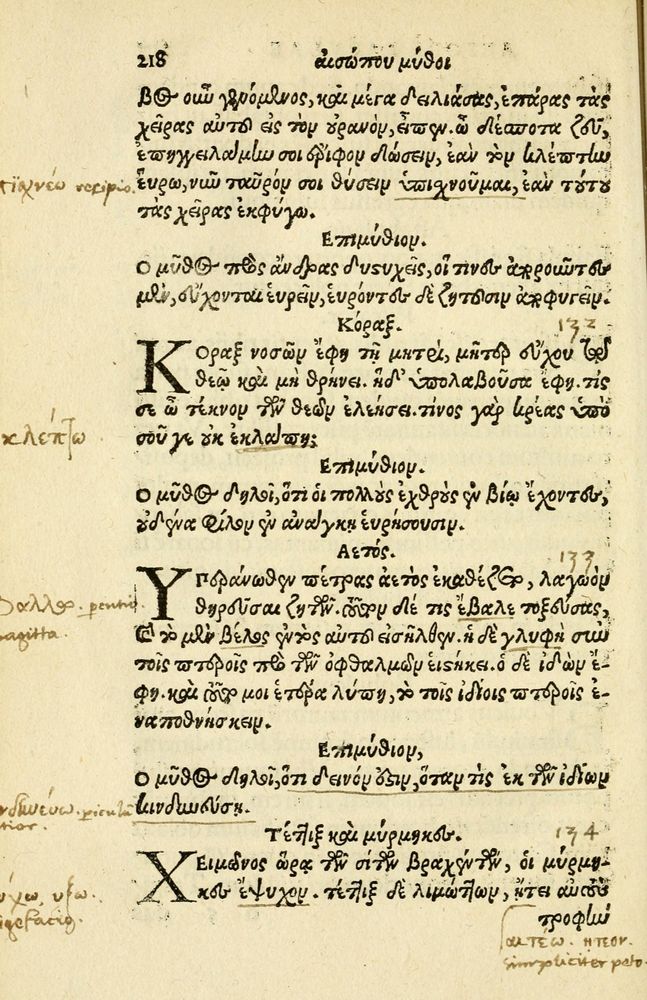 218 αισώπου μύθοι
βος οιῦ γενόμενος, καὶ μέγα δειλιάσας, ἐπάρας τὰς
χεῖρας αὐτοῦ εἰς τὸν οὐρανὸν, εἶπεν. ὦ δέσποτα ζεῦ,
ἐπηγγειλάμην σοι ἔριφον δώσειν, ἐὰν τὸν κλέπτην
εὕρω, νῦν ταῦρόν σοι θύσειν ὑπιχνοῦμαι, ἐὰν τούτου
τὰς χεῖρας ἐκφύγω.
Επιμύθιον.
Ο μῦθος πρὸς ἄνδρας δυστυχεῖς, οἵ τινες ἀποροῦντες
μὲν, εὔχονται εὑρεῖν, εὑρόντες δὲ ζητοῦσιν ἀποφυγεῖν.
Κόραξ. 132
ΚΟραξ νοσῶν ἔφη τῇ μητρὶ, μῆτερ εὔχου τῷ
θεῷ καὶ μὴ θρήνει. ἡ δ' ὑπολαβοῦσα ἔφη. τίς
σε ὦ τέκνον τῶν θεῶν ἐλεήσει. τίνος γὰρ κρέας ὑπὸ
σοῦ γε οὐκ ἐκλάπη;
Επιμύθιον.
Ο μῦθος δηλοῖ, ὅτι οἱ πολλοὺς ἐχθροὺς ἐν βίῳ ἔχοντες,
οὐδένα φίλον ἐν ἀνάγκῃ εὑρήσουσιν.
Αετός. 133
ΥΠεράνωθεν πέτρας ἀετὸς ἐκαθέζετο, λαγωὸν
θηρεῦσαι ζητῶν. τοῦτον δέ τις ἔβαλε τοξεύσας,
καὶ τὸ μὲν βέλος ἐντὸς αὐτοῦ εἰσῆλθεν. ἡ δὲ γλυφὴ σὺν
τοῖς πτεροῖς πρὸ τῶν ὀφθαλμῶν εἱστήκει. ὁ δὲ ἰδὼν ἔ-
φη. καὶ τοῦτό μοι ἑτέρα λύπη, τὸ τοῖς ἰδίοις πτεροῖς ἐ-
ναποθνήσκειν.
Επιμύθιον,
Ο μῦθος δηλοῖ, ὅτι δεινόν ἐστιν, ὅταν τὶς ἐκ τῶν ἰδίων
κινδυνεύσῃ.
Τέττιξ καὶ μύρμηκες. 134
ΧΕιμῶνος ὥρᾳ τῶν σίτων βραχέντων, οἱ μύρμη-
κες ἔψυχον. τέττιξ δὲ λιμώττων, ᾔτει αὐτοὺς
τροφὴν
recipio.
κλέπτω
sagitta.
αιτέω. ητεον.
simpliciter peto.